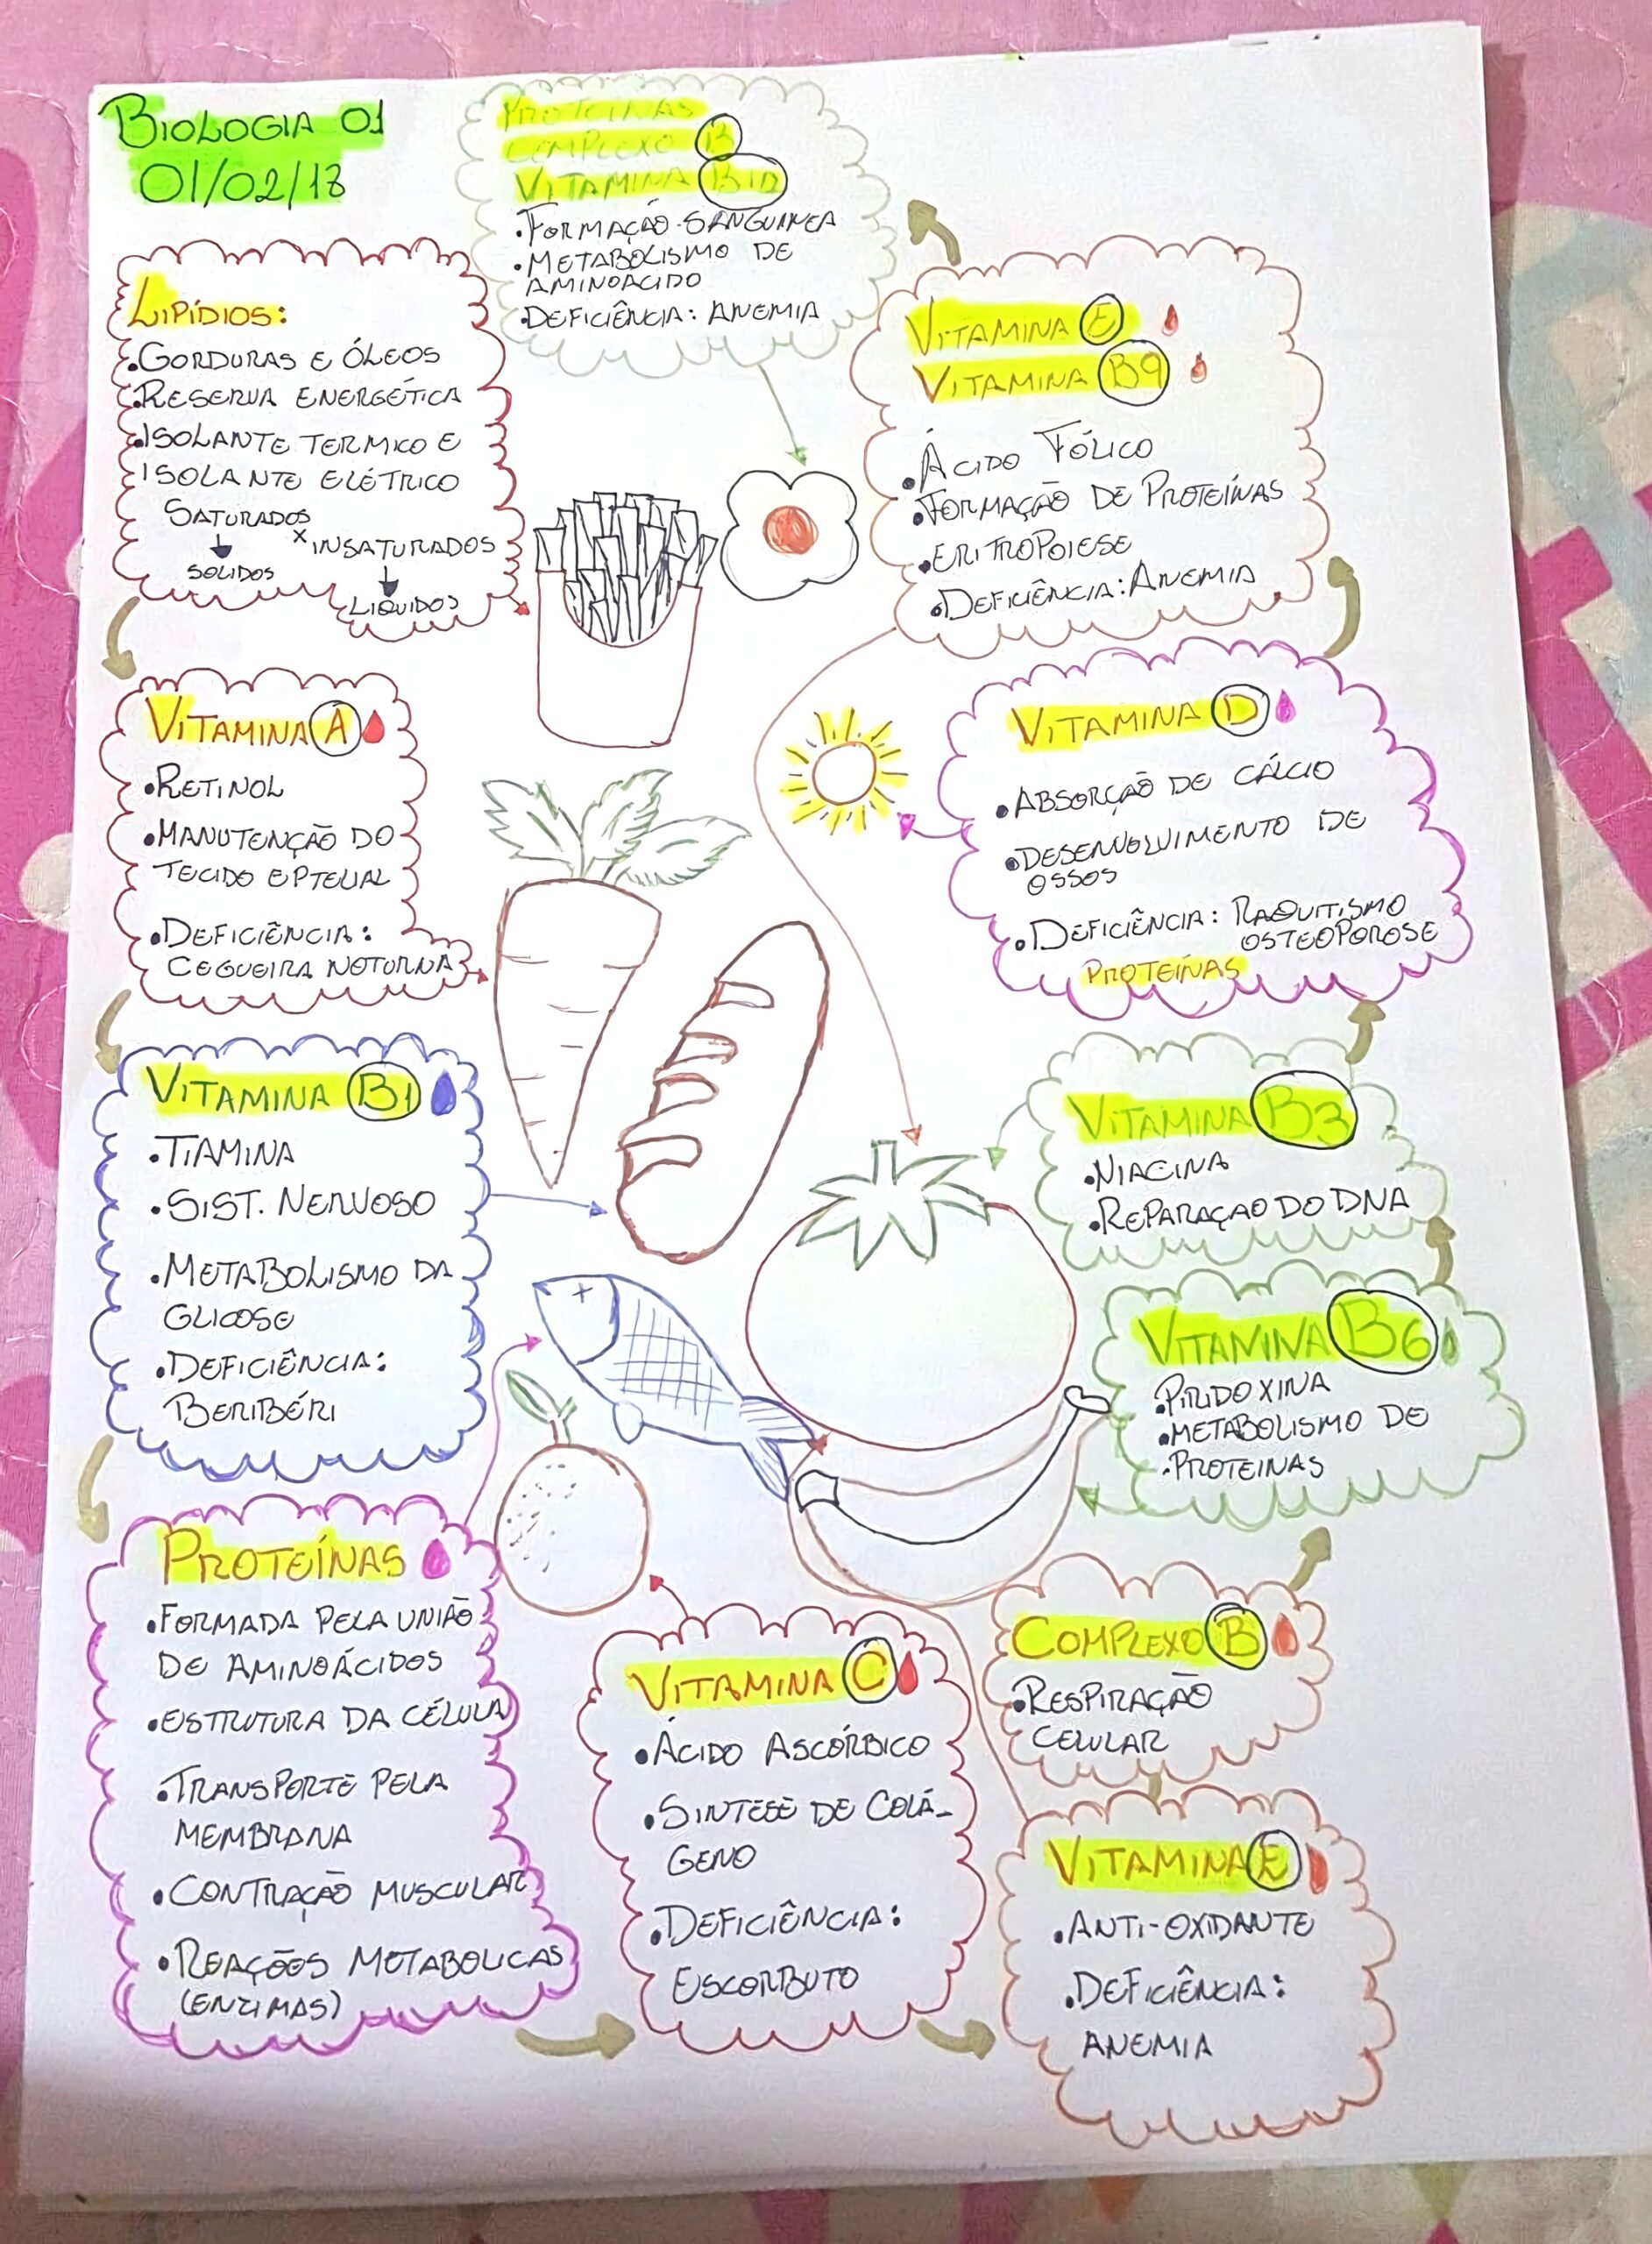 BIOLOGIA 01
01/02/18
PROTEÍNAS
COMPLEXO B
VITAMINA B12
•FORMAÇÃO SANGUINEA
•METABOLISMO DE
AMINOACIDO
•DEFICIÊNCIA: ANEMIA
LIPÍDIOS:
•GORDURAS E ÓLEOS
•RESERVA ENERGÉTICA
•ISOLANTE TERMICO E
ISOLANTE ELÉTRICO
SATURADOS
X INSATURADOS
SOLIDOS
LIQUIDOS
VITAMINA A
•RETINOL
•MANUTENÇÃO DO
TECIDO EPTELIAL
•DEFICIÊNCIA:
CEGUEIRA NOTURNA
VITAMINA B1
•TIAMINA
•SIST. NERVOSO
•METABOLISMO DA
GLICOSE
•DEFICIÊNCIA:
BERIBÉRI
PROTEÍNAS
•FORMADA PELA UNIÃO
DE AMINOÁCIDOS
•ESTRUTURA DA CÉLULA
•TRANSPORTE PELA
MEMBRANA
•CONTRAÇÃO MUSCULAR
•REAÇÕES METABOLICAS
(ENZIMAS)
VITAMINA C
•ÁCIDO ASCÓRBICO
•SINTESE DE COLÁ-
GENO
•DEFICIÊNCIA:
ESCORBUTO
VITAMINA E
•ANTI-OXIDANTE
•DEFICIÊNCIA:
ANEMIA
COMPLEXO B
•RESPIRAÇÃO
CELULAR
VITAMINA B6
•PIRIDOXINA
•METABOLISMO DE
•PROTEINAS
VITAMINA B3
•NIACINA
•REPARAÇAO DO DNA
VITAMINA D
•ABSORÇÃO DE CÁLCIO
•DESENVOLVIMENTO DE
OSSOS
•DEFICIÊNCIA: RAQUITISMO
OSTEOPOROSE
PROTEÍNAS
VITAMINA E
VITAMINA B9
•ÁCIDO FÓLICO
•FORMAÇÃO DE PROTEÍNAS
•ERITROPOIESE
•DEFICIÊNCIA: ANEMIA